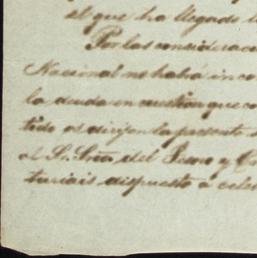 el que ha llegado
Por las considerac
Nacional no habrá inco
la deuda en cuestion que co
tido es dirijen la presente
al S. Sria del Tesoro y Cr
turiais dispuesto á cele